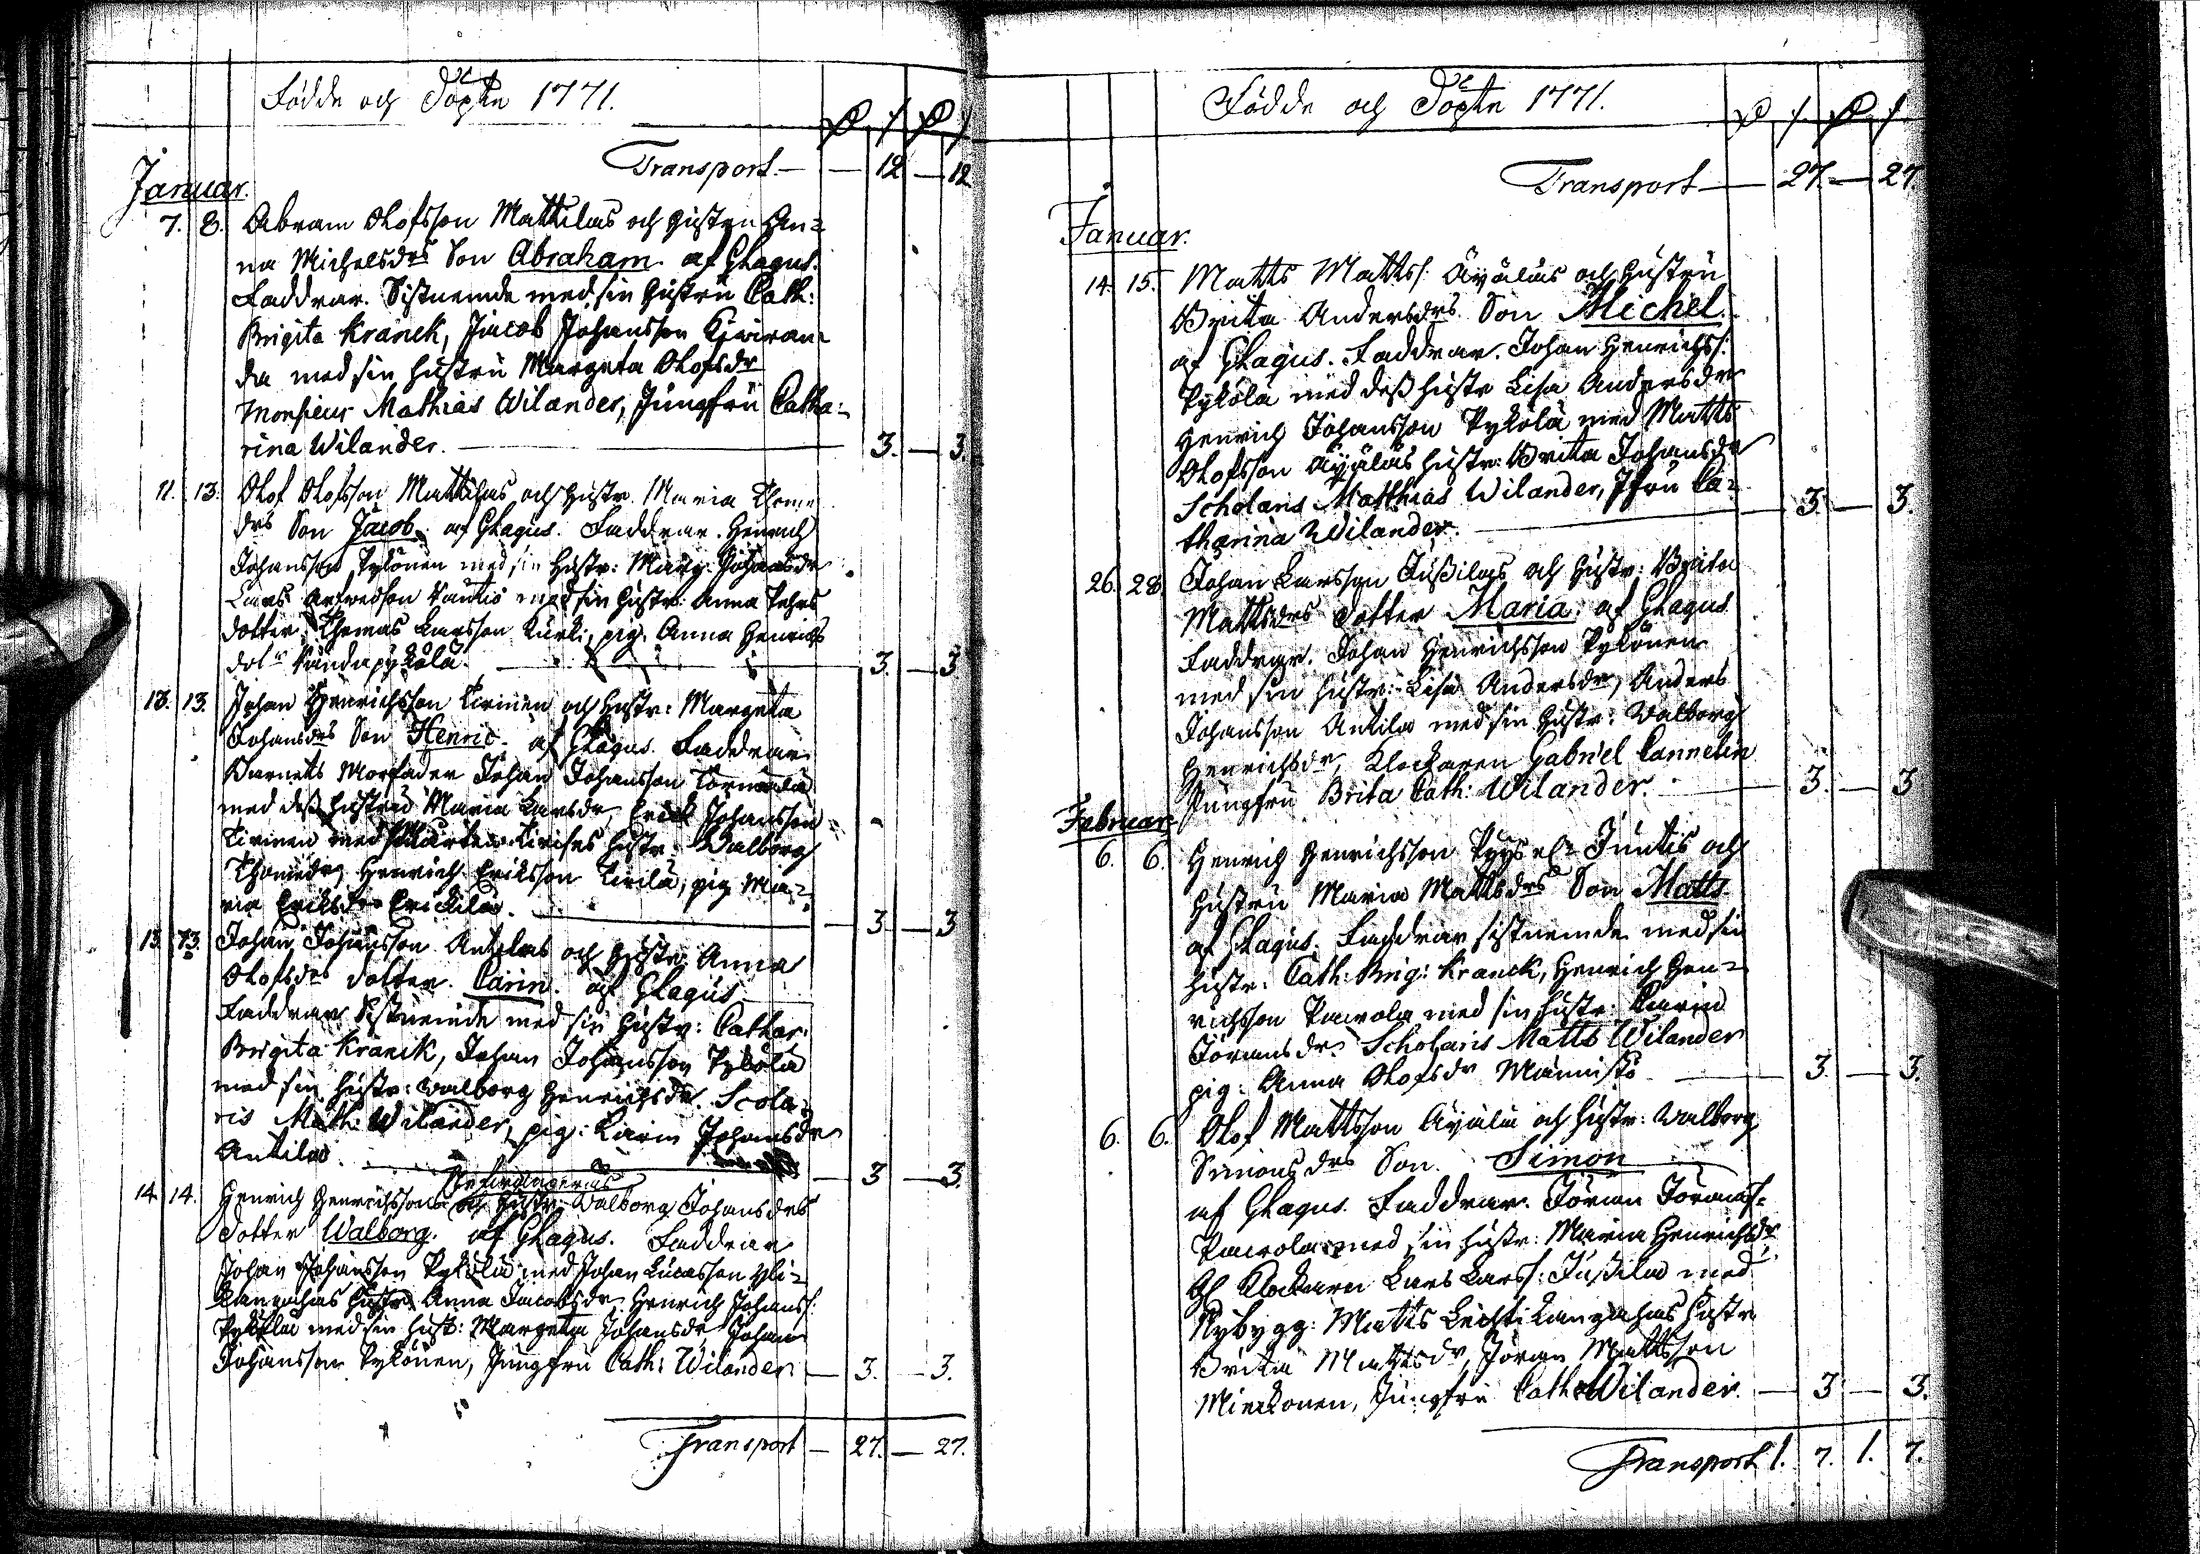 Födde och Döpte 1771.
Transport — 12 — 12
Januar.
7. 8. Abram Olofsson Mattilas och hustru An=
na Michelsdrs Son Abraham af Ghagus.
Faddrar. Sistnemde med sin hustru Cath:
Brigita Kranck, Jacob Johansson
da med sin hustru Margeta Olofsdr
Monsieur Mathias Wilander, Jungfru Catha=
rina Wilander. — 3. — 3.
11. 13. Olof Olofsson Mattilas och hustr. Maria
drs Son Jacob. af Ghagus. Faddrar. Henrich
Johansson Pykönen med sin hustr: Marg: Johansdr
Lars med sin hustr: Anna Pehrs
dotter, Thomas Larsson Kurki, pig. Anna Henrichs
dotr — 3. — 3
13. 13. Johan Henrichsson och hustr: Margeta
Johansdrs Son Henric. af Ghagus. Faddrar
Barnets Morfader Johan Johansson Tormälä
med dess hustru Maria Larsdr, Erick Johansson
med hustr: Walborg
Thomædr, Henrich Eriksson pig Ma=
ria Eriksdr Erickilä. — 3 — 3
13. 13. Johan Johansson Antilas och hustr: Anna
Olofsdrs dotter. Carin. af Ghagus
Faddrar Sistnemde med sin hustr: Cathar.
Brigita Kranck, Johan Johansson Pyköla
med sin hustr: Walborg Henrichsdr. Scola=
ris Math: Wilander, pig: Karin Johansdr
Antila. — 3 — 3.
14. 14. Henrich Henrichssons och hustr: Walborg Johansdrs
Dotter Walborg. af Ghagus. Faddrar
Johan Johansson Pyköla med Johan Lucasson Yli=
kangahas hustr Anna Jacobsdr, Henrich Johanss:
Pyköla med sin hust: Margeta Johansdr, Johan
Johansson Pykönen, Jungfru Cath: Wilander — 3. — 3.
Transport — 27. — 27.
Födde och Döpte 1771.
Transport — 27. — 27
Januar.
14. 15. Matts Matts: Äyäläs och hustru
Brita Andersdrs. Son Michel.
af Ghagus. Faddrar. Johan Henrichs:
Pyköla med dess hustr Lisa Andersdr
Henrich Johansson Pyköla med Matts
Olofsson Äyäläs hustr: Brita Johansdr
Scholaris Matthias Wilander, Jfru Ca=
tharina Wilander. — 3. — 3.
26. 28. Johan Larsson Jussilas och hustr: Brita
Mattsdrs Dotter Maria. af Ghagus
Faddrar. Johan Henrichsson Pykönen
med sin hustr: Lisa Andersdr, Anders
Johansson Antila med sin hustr: Walborg
Henrichsdr, Klockaren Gabriel Cannelin
Jungfru Brita Cath: Wilander. — 3. — 3
Februar:
6. 6. Henrich Henrichsson Juntis och
hustru Maria Mattsdrs Son Matts
af Ghagus. Faddrar sistnemde med sin
hustr: Cath: Brig: Kranck, Henrich Hen=
richsson Pavola med sin hustr: Carin
Göransdr. Scholaris Matts Wilander
pig: Anna Olofsdr Männistö — 3. — 3.
6. 6. Olof Mattsson Äyälä och hustr: Walborg
Simonsdrs Son. Simon
af Ghagus. Faddrar. Göran Görans=
Pavola med sin hustr: Maria Henrichsdr
Klockaren Lars Larss: Jussila med
Nybygg: Matts Lechtikangahas hustr
Brita Mattsdr, Göran Mattsson
Mierkonen, Jungfru Cath Wilander. — 3 — 3.
Transport 1. 7. 1. 7.